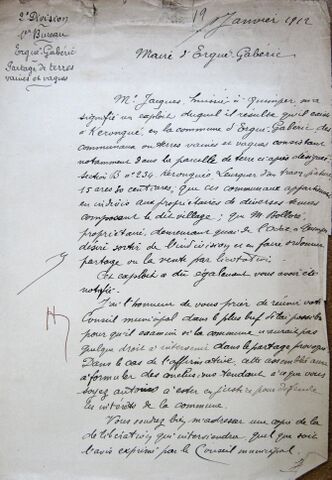 2e Division
1er Bureau
Ergué-Gabéric
Partage de terres
vaines et vagues
19 Janvier 1912
Maire d'Ergué-Gabéric
Me Jacques, huissier à Quimper m'a
signifié un exploit duquel il résulte qu'il existe
à Kerongué, en la commune d'Ergué-Gabéric des
communaux ou terres vaines et vagues consistant
notamment dans la parcelle de terre ci après désignée
section B no 234, Kerongué, Leurguer d'an traon, pature
15 ares 30 centiares; que ces communaux appartiennent
en indivis aux propriétaires de diverses tenues
composant le dit village; que M. Bolloré,
propriétaire, demeurant quai de l'Odet à Quimper
désire sortir de l'indivision et en faire ordonner
partage ou la vente par licitation.
Cet exploit a dû également vous être
notifié.
J'ai l'honneur de vous prier de réunir votre
Conseil municipal dans le plus bref délai possible
pour qu'il examine si la commune n'aurait pas
quelque droit à intervenir dans le partage provoqué.
Dans le cas de l'affirmative, cette assemblée aura
à formuler des conclusions tendant à ce que vous
soyez autorisé à ester en justice pour défendre
les intérêts de la commune.
Vous voudrez bien m'adresser une copie de la
délibération qui interviendra, quel que soit
l'avis exprimé par le Conseil municipal.